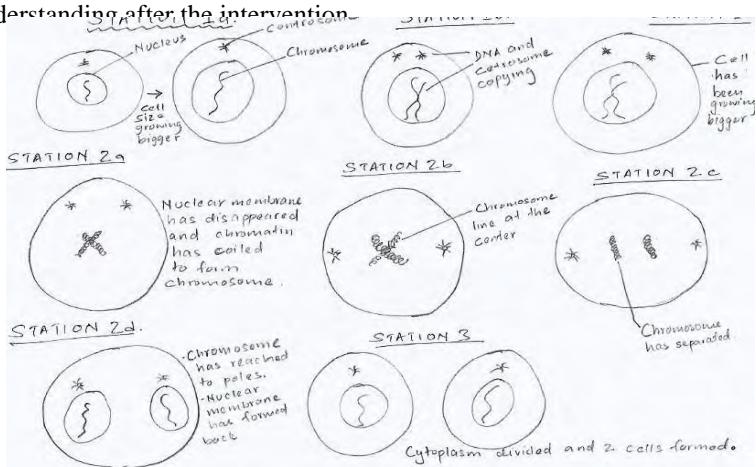 derstanding after the intervention
STATION 1a.
Nucleus
cell
size
growing
bigger
Centrosome
Chromosome
DNA and
cetrosome
copying
Cell
has
been
growing
bigger
STATION 2a
Nuclear membrane
has disappeared
and chromatin
has coiled
to form
chromosome.
STATION 2b
Chromosome
line at the
center
STATION 2.c
Chromosome
has separated
STATION 2d.
·Chromosome
has reached
to poles.
·Nuclear
membrane
has formed
back
STATION 3
Cytoplasm divided and 2 cells formed.